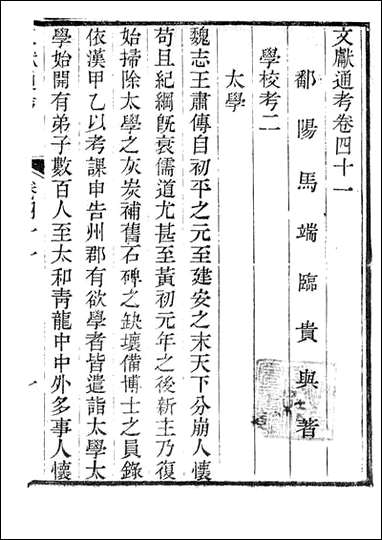 文獻通考卷四十一
鄱陽馬端臨貴與著
學校考二
太學
魏志王肅傳自初平之元至建安之末天下分崩人懷
苟且紀綱旣衰儒道尤甚至黃初元年之後新主乃復
始掃除太學之灰炭補舊石碑之缺壞備博士之員錄
依漢甲乙以考課申告州郡有欲學者皆遣詣太學太
學始開有弟子數百人至太和青龍中中外多事人懷